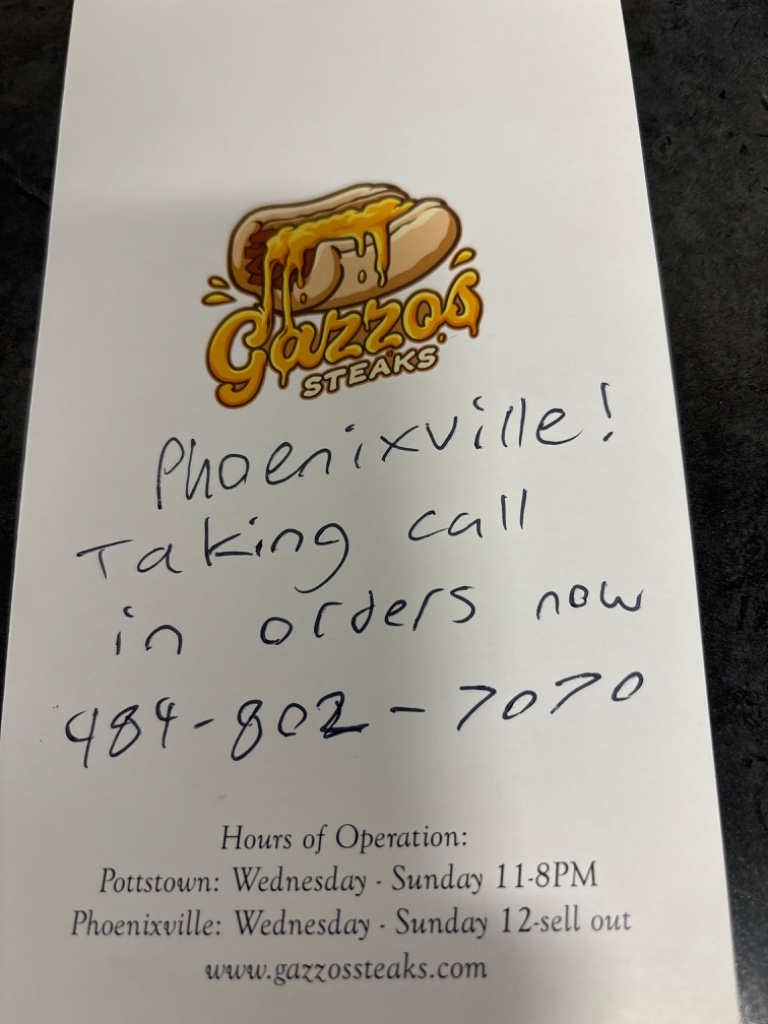 Gazzos
STEAKS
Phoenixville!
Taking call
in orders now
484-802-7070
Hours of Operation:
Pottstown: Wednesday - Sunday 11-8PM
Phoenixville: Wednesday - Sunday 12-sell out
www.gazzossteaks.com